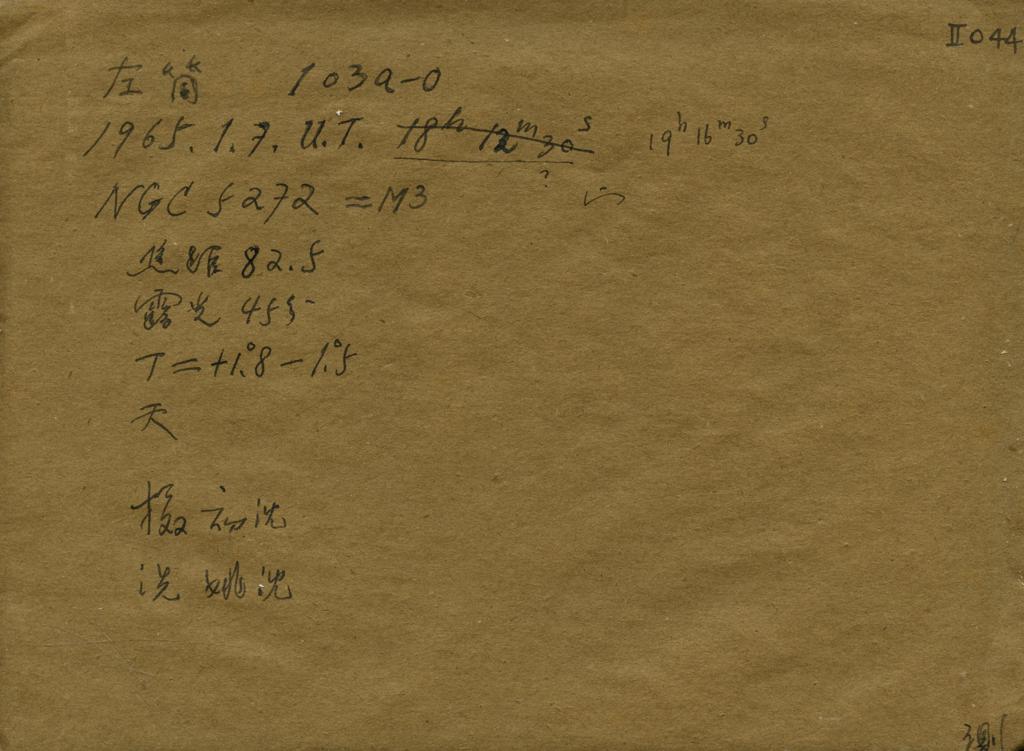 II044
左筒 103a-0
1965.1.7. U.T. 18h 12m 30s 19h 16m 30s
?
NGC 5272 = M3
焦距 82.5
露光 45分
T = +1°.8 - 1°.5
天
摄 沈
洗 姚沈
测